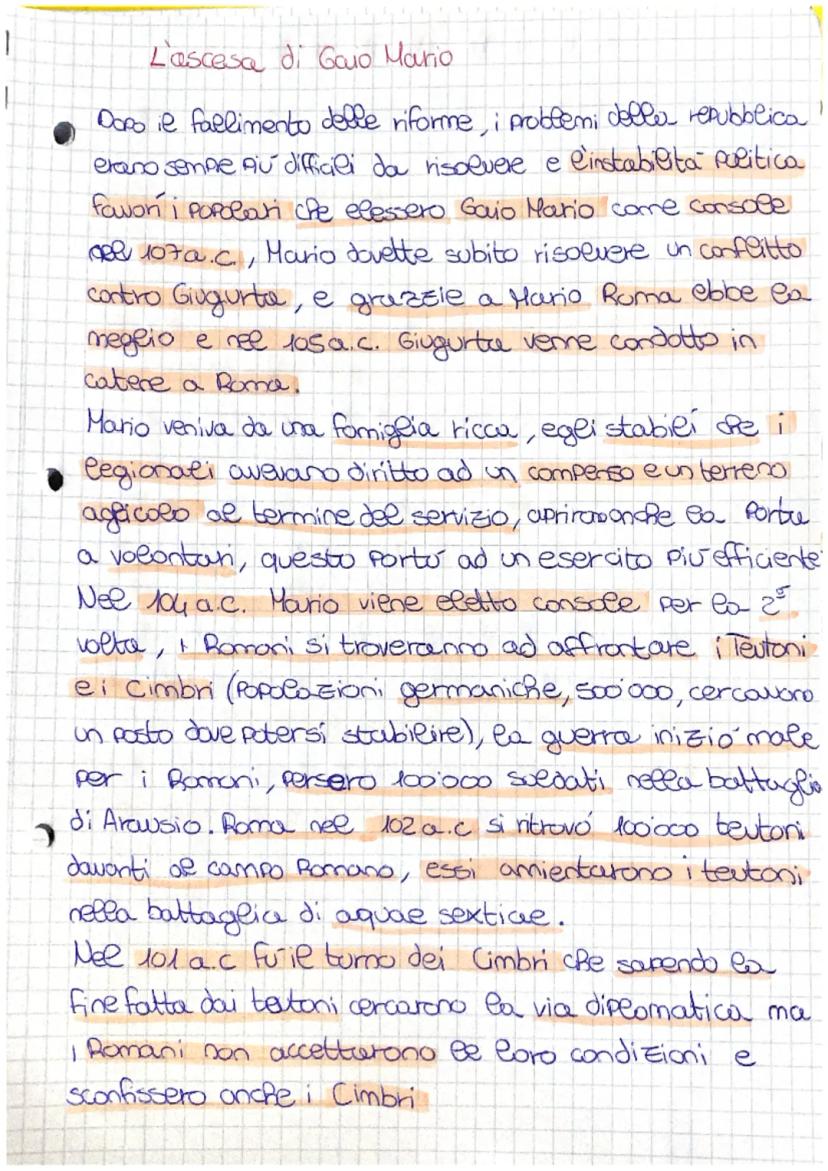 L'ascesa di Gaio Mario
Dopo il fallimento delle riforme, i problemi della repubblica
erano sempre più difficili da risolvere e l'instabilità politica
favorì i popolari che elessero Gaio Mario come console
nel 107 a.c, Mario dovette subito risolvere un conflitto
contro Giugurta, e grazzie a Mario Roma ebbe la
meglio e nel 105 a.c. Giugurta venne condotto in
catene a Roma.
Mario veniva da una famiglia ricca, egli stabilì che i
legionali avevano diritto ad un compenso e un terreno
agricolo al termine del servizio, aprirono anche la porta
a volontari, questo portò ad un esercito più efficiente
Nel 104 a.c. Mario viene eletto console per la 2ª
volta, i Romani si troveranno ad affrontare i Teutoni
e i Cimbri (popolazioni germaniche, 500'000, cercavano
un posto dove potersi stabilire), la guerra iniziò male
per i Romani, persero 100'000 soldati nella battaglia
di Arausio. Roma nel 102 a.c si ritrovò 100'000 teutoni
davanti al campo Romano, essi annientarono i teutoni
nella battaglia di aquae sextiae.
Nel 101 a.c fu il turno dei Cimbri che sapendo la
fine fatta dai teutoni cercarono la via diplomatica ma
i Romani non accettarono le loro condizioni e
sconfissero anche i Cimbri